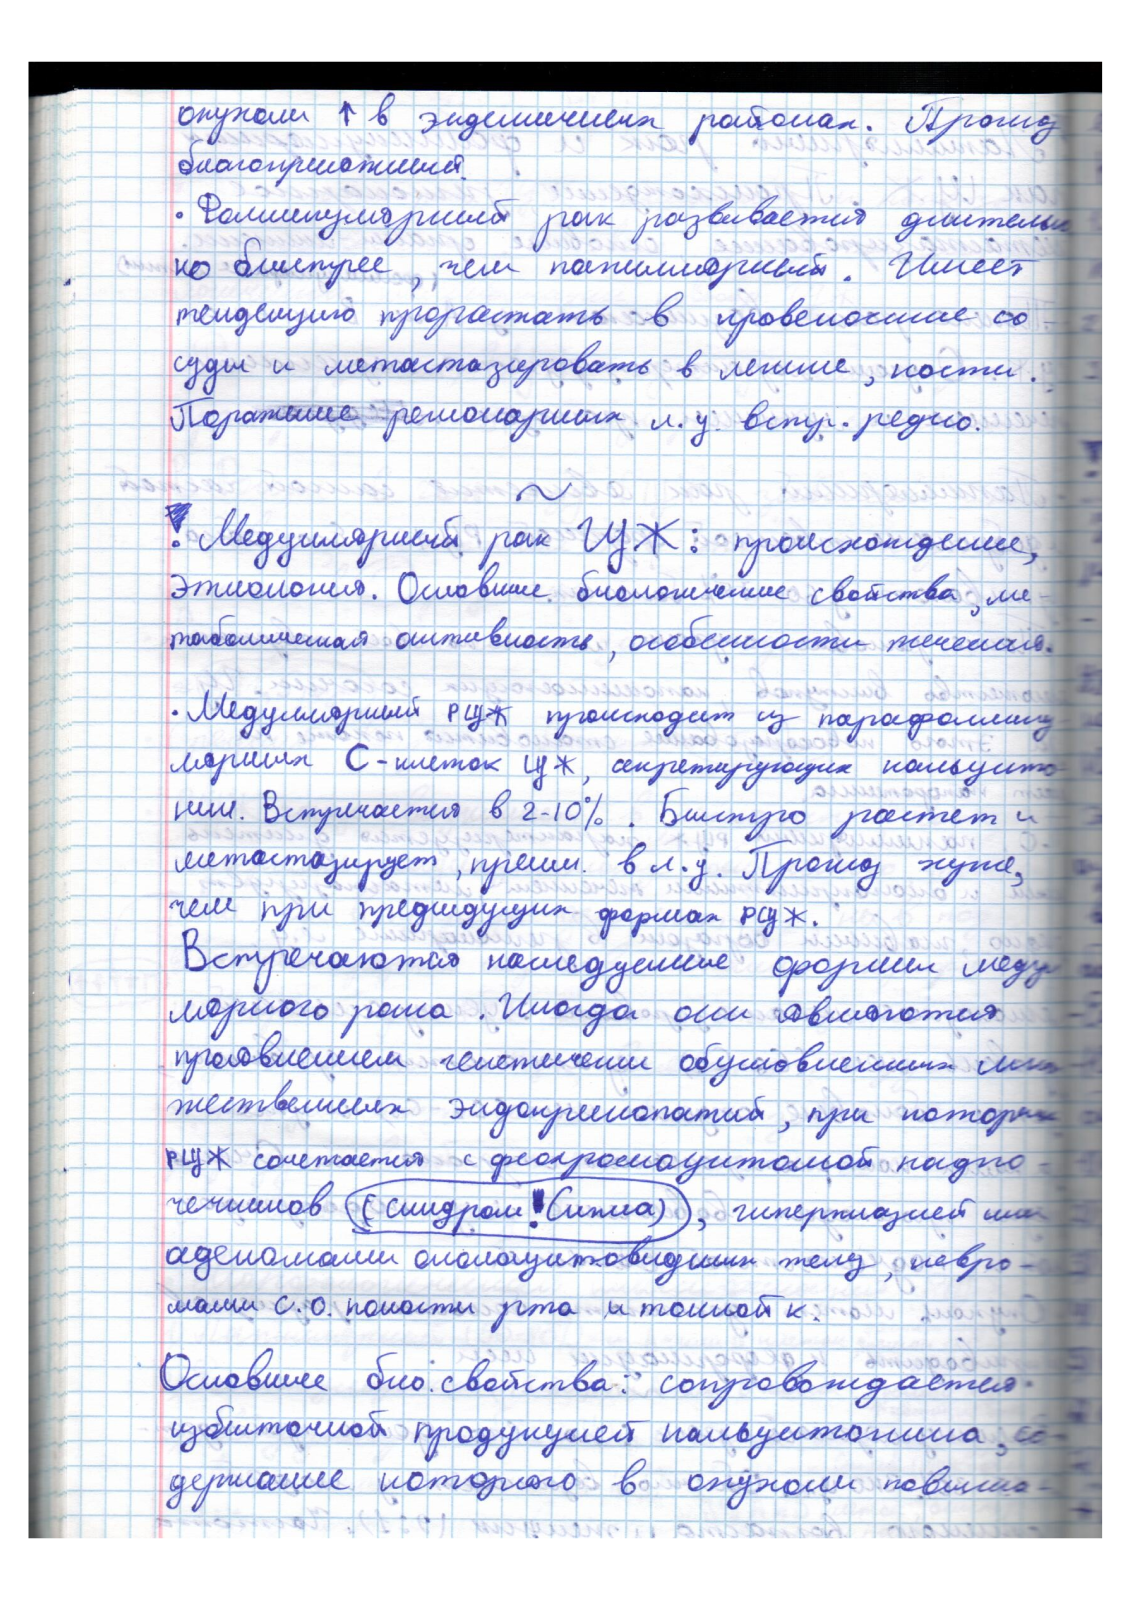 опухоли ↑ в эндемичных районах. Прогноз
благоприятный.
• Фолликулярный рак развивается длитель
но быстрее, чем папиллярный. Имеет
тенденцию прорастать в кровеносные со-
суды и метастазировать в легкие, кости.
Поражение регионарных л.у. встр. редко.
~
! Медуллярный рак ЩЖ: происхождение,
этиология. Основные биологичные свойства, ме-
таболическая активность, особенности течения.
• Медуллярный РЩЖ происходит из парафоллику
лярных С-клеток ЩЖ, секретирующих кальцито
нин. Встречается в 2-10%. Быстро растет и
метастазирует, преим. в л.у. Прогноз хуже,
чем при предыдущих формах РЩЖ.
Встречаются наследуемые формы меду
лярного рака. Иногда они являются
проявлением генетически обусловленных мно
жественных эндокринопатий, при которых
РЩЖ сочетается с феохромоцитомой надпо-
чечников (синдром ! Сиппла), гиперплазией или
аденомами околощитовидных желёз, невро-
мами с.о. полости рта и толстой к.
Основные био. свойства: сопровождается
избыточной продукцией кальцитонина, со-
держание которого в опухоли повыша-